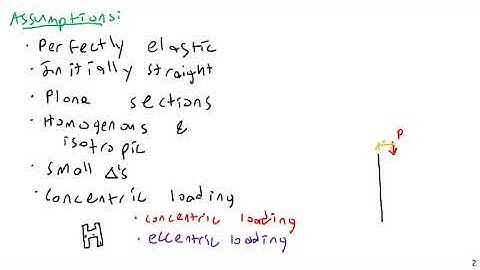 Assumptions:
· Perfectly elastic
· Initially straight
· Plane sections
· Homogenous &
isotropic
· small Δ's
· Concentric loading
· concentric loading
· eccentric loading
P
2